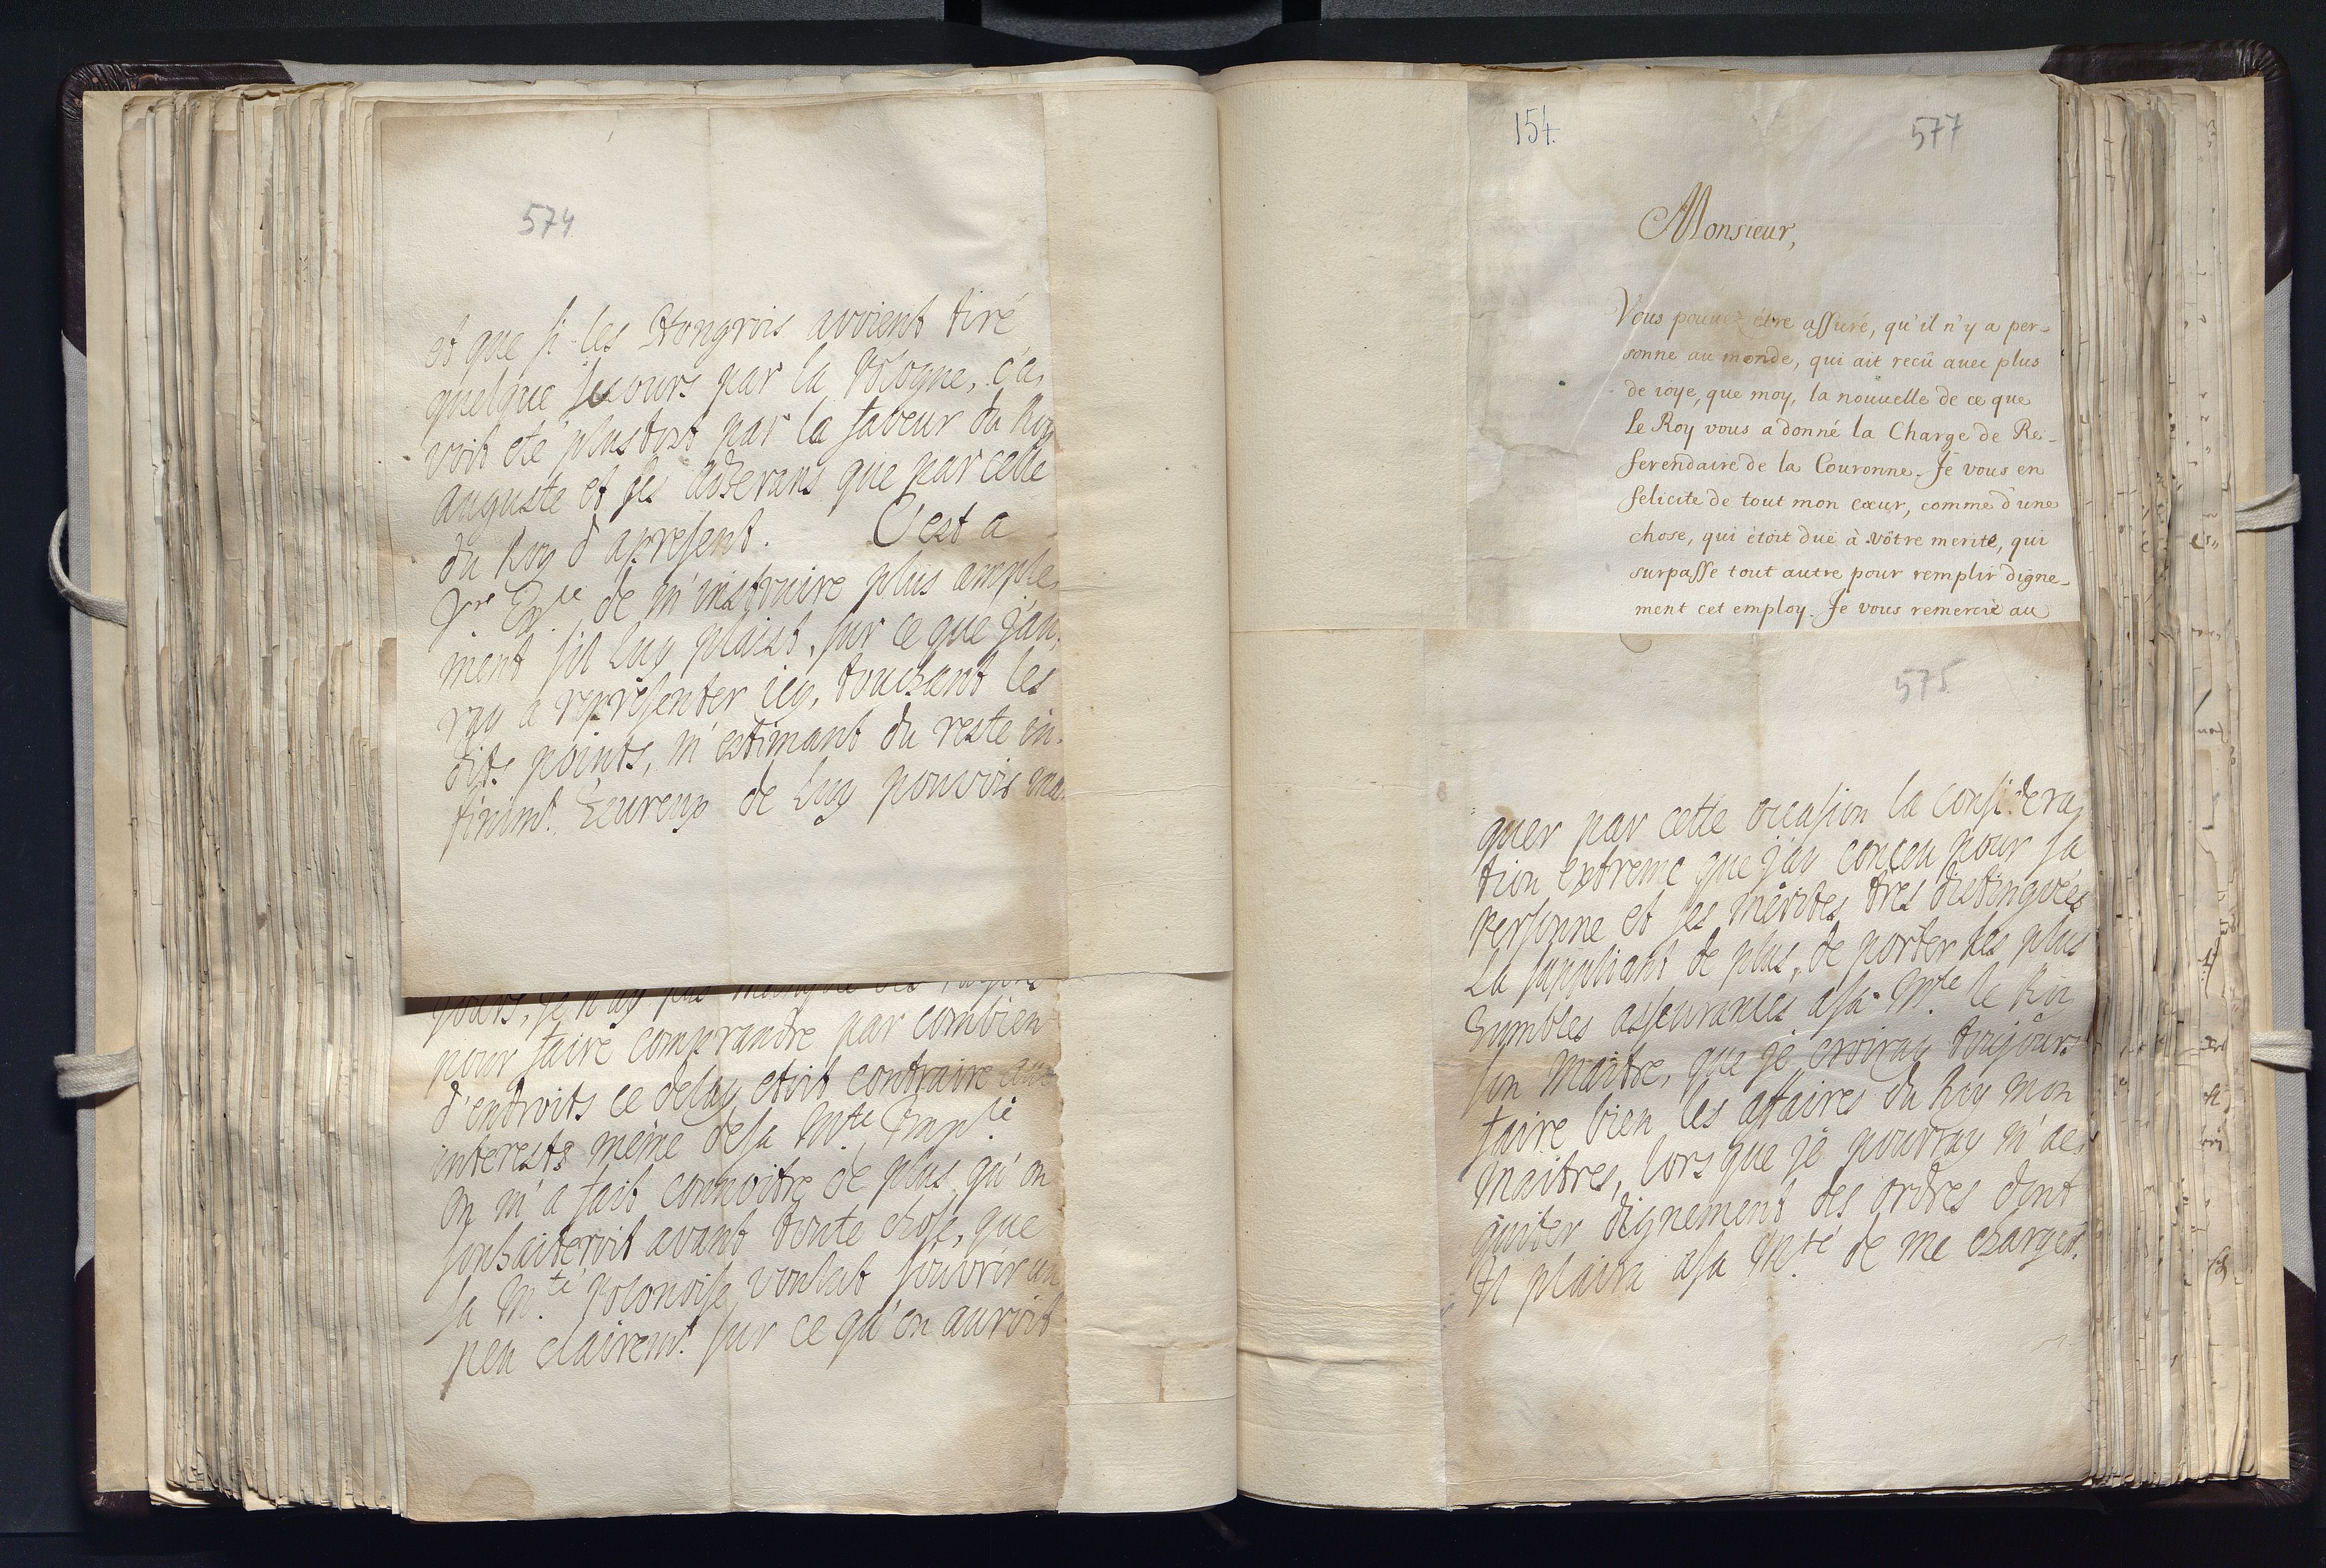 574
et que si les Hongrois avoient tiré
quelque secours par la Pologne, c'a,
voit eté plustost par la faveur du Roy
Auguste et ses adherans que par celle
du Roy d'apresent. C'est a
Vre Exce de m'instruire plus ample,
ment s'il Luy plaist, sur ce que j'au,
ray a representer icy, touchant les
dits points, m'estimant du reste in,
finimt. heureux de Luy pouvoir ma,
jours, je n'ay pas manqué des raisons
pour faire comprandre par combien
d'endroits ce delay etoit contraire aux
interests méme desa Mte Imple
On m'a fait connoitre de plus qu'on
souhaiteroit avant toute chose, que
sa M.té Polonoise voulut s'ouvrir un
peu clairemt. sur ce qu'on auroit
154.
577
Monsieur,
Vous pouvez étre assuré, qu'il n'y a per-
sonne au monde, qui ait recû avec plus
de ioye, que moy, la nouuelle de ce que
Le Roy vous a donné la Charge de Re-
ferendaire de la Couronne. Je vous en
felicite de tout mon cœur, comme d'une
chose, qui étoit due à vôtre merite, qui
surpasse tout autre pour remplir digne-
ment cet employ. Je vous remercie au
575
quer par cette occasion la considera,
tion extreme que j'ay conceu pour sa
Personne et ses mérites tres distinguées
La suppliant de plus, de porter mes plus
humbles asseurances asa Mte le Roi
son Maitre, que je croiray toujours
faire bien les affaires du Roy mon
Maitres, lorsque je pourray m'ac,
quiter dignement des ordres dont
Il plaira asa M.té de me charger.